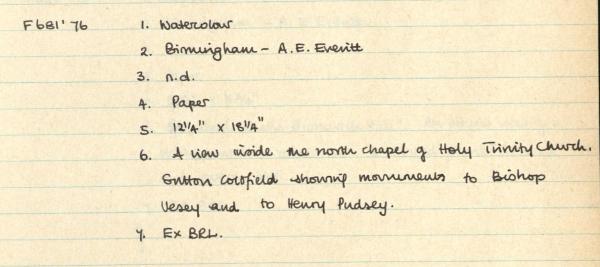 F681'76 1. Watercolour
2. Birmingham - A.E. Everitt
3. n.d.
4. Paper
5. 12¼" x 18¼"
6. A view inside the north chapel of Holy Trinity Church.
Sutton Coldfield showing monuments to Bishop
Vesey and to Henry Pudsey.
7. Ex BRL.